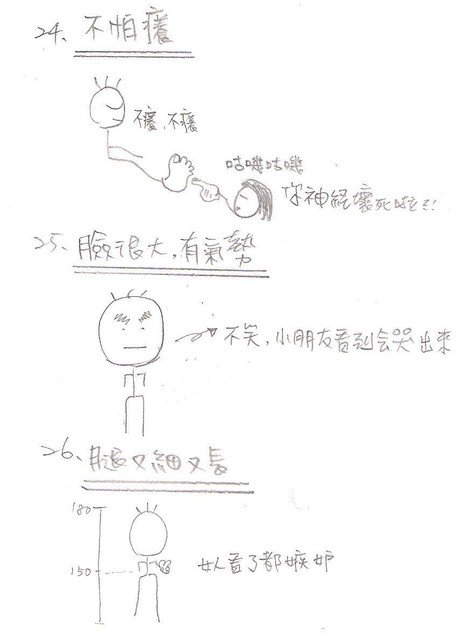 24、不怕癢
不癢、不癢
咕嘰咕嘰
你神経壞死哦?!
25、臉很大，有氣勢
不笑，小朋友看到会哭出來
26、腿又細又長
180
150
女人看了都嫉妒